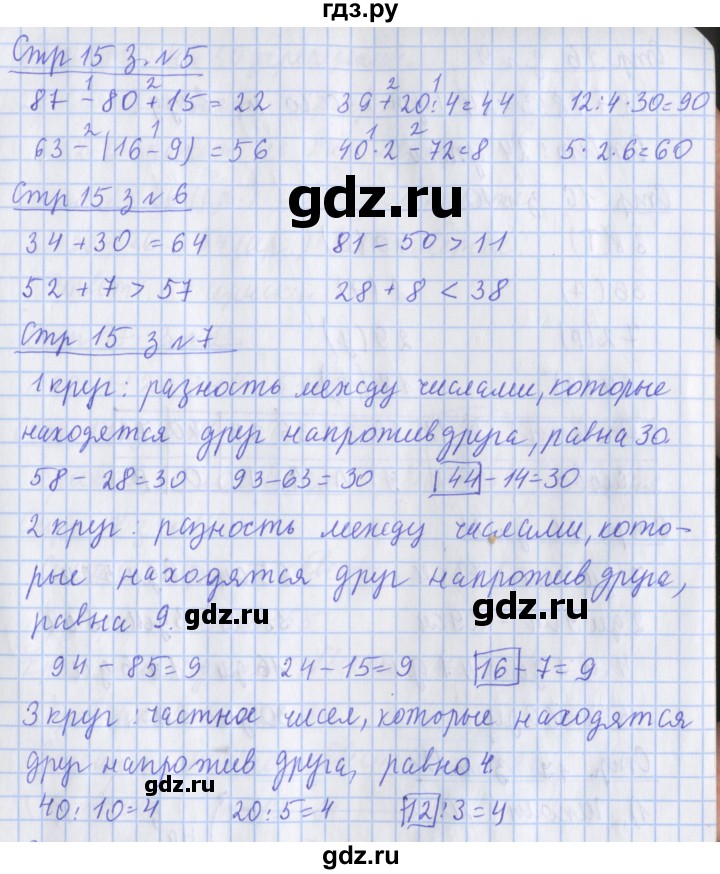 гдз.ру
Стр 15 з. №5
1 2 2 1
87 - 80 + 15 = 22 39 + 20 : 4 = 44 12 : 4 · 30 = 90
2 1 1 2
63 - (16 - 9) = 56 40 · 2 - 72 = 8 5 · 2 · 6 = 60
gdz.ru
Стр 15 з №6
34 + 30 = 64 81 - 50 > 11
52 + 7 > 57 28 + 8 < 38
Стр 15 з №7
1 круг: разность между числами, которые
находятся друг напротив друга, равна 30.
gdz.ru
58 - 28 = 30 93 - 63 = 30 44 - 14 = 30
2 круг: разность между числами, кото-
рые находятся друг напротив друга,
равна 9.
gdz.ru gdz.ru
94 - 85 = 9 24 - 15 = 9 16 - 7 = 9
3 круг: частное чисел, которые находятся
друг напротив друга, равно 4.
gdz.ru
40 : 10 = 4 20 : 5 = 4 12 : 3 = 4
gdz.ru